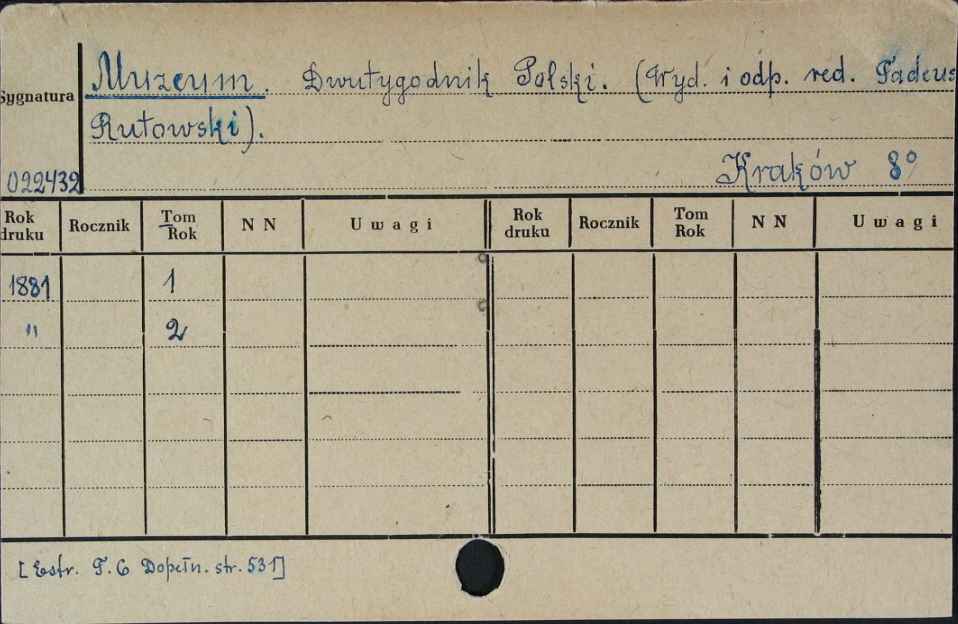 Muzeum. Dwutygodnik Polski. (Wyd. i odp. red. Tadeus
Rutowski).
Sygnatura
Kraków 8°
022432
Rok druku Rocznik Tom Rok NN Uwagi Rok druku Rocznik Tom Rok NN Uwagi
1881 1
" 2
[Estr. T. 6 Dopełn. str. 531]